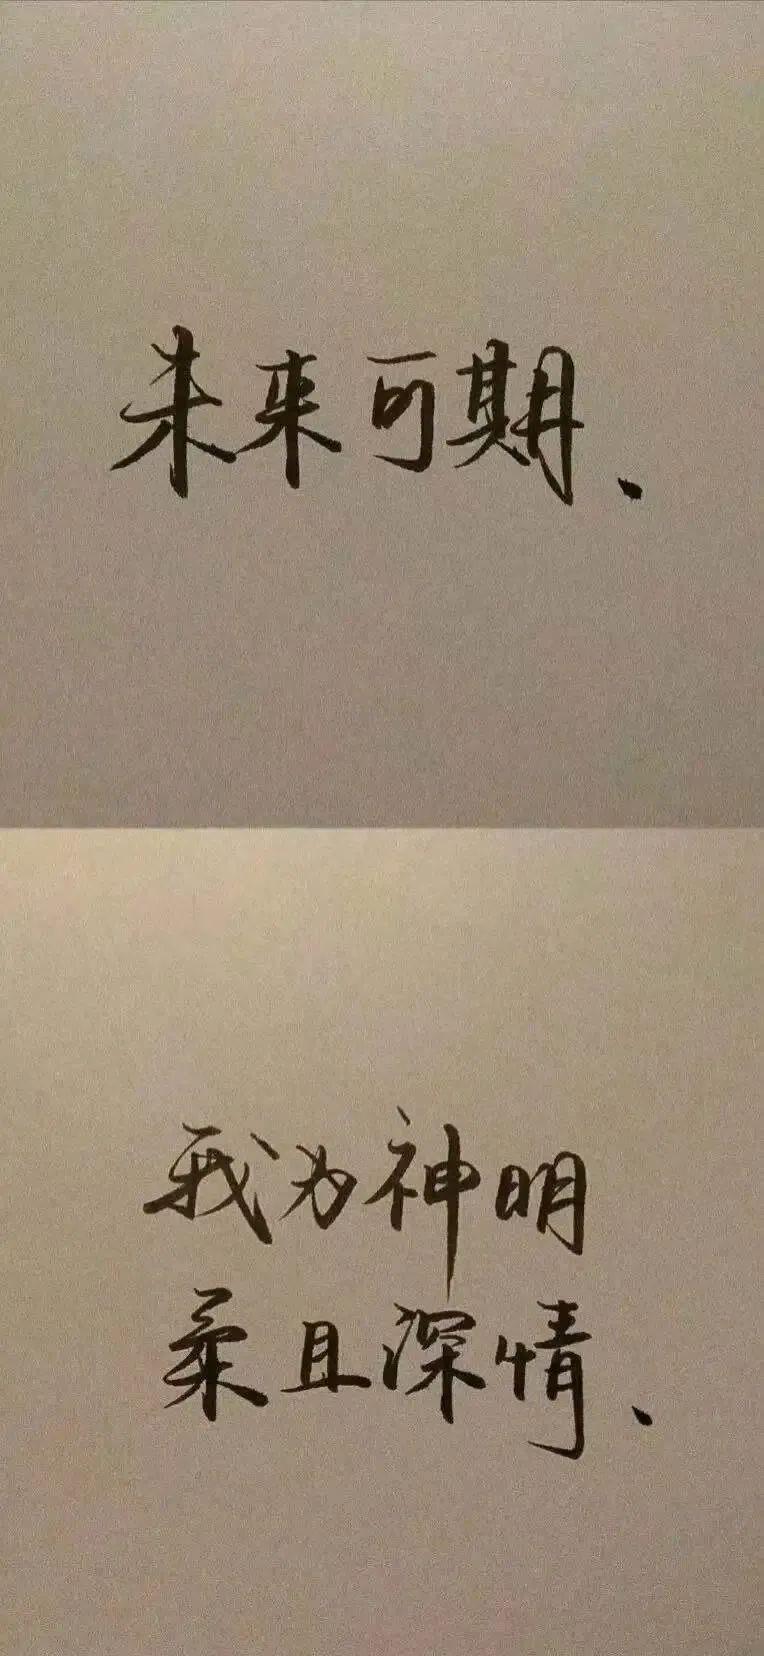 未来可期、
我为神明
柔且深情、